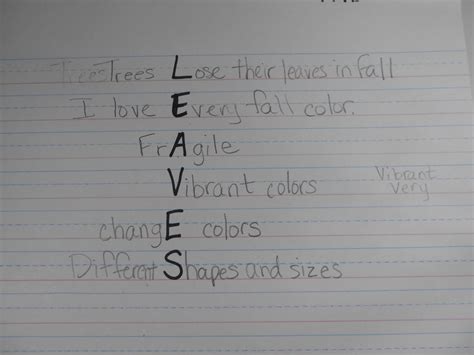 Trees Trees Lose their leaves in fall
I love Every fall color.
FrAgile
Vibrant colors
Vibrant
Very
changE colors
Different Shapes and sizes